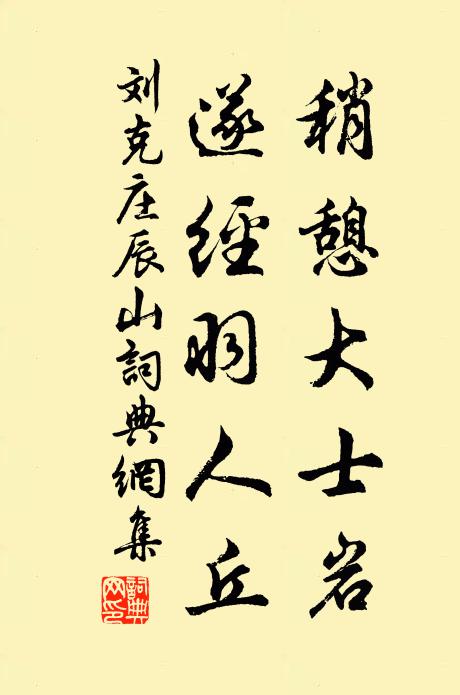 稍憩大士岩
遂经羽人丘
刘克庄辰山詞典網集
詞典网印